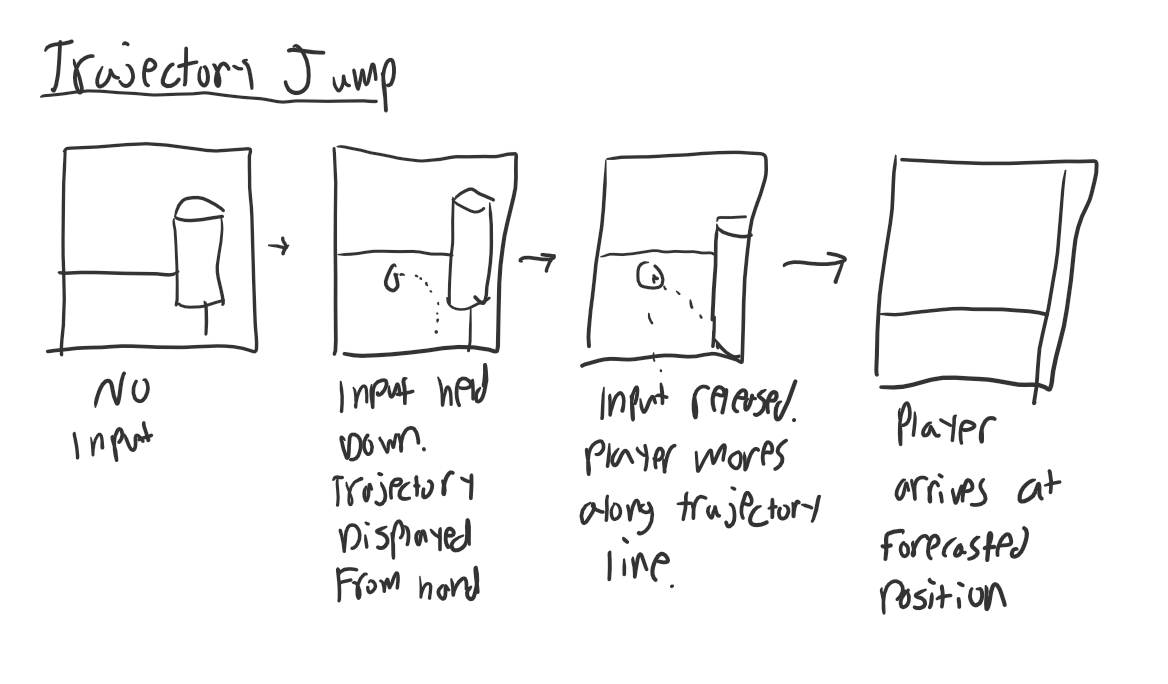 Trajectory Jump
No
Input
Input held
Down.
Trajectory
Displayed
From hand
Input released.
Player moves
along trajectory
line.
Player
arrives at
Forecasted
Position